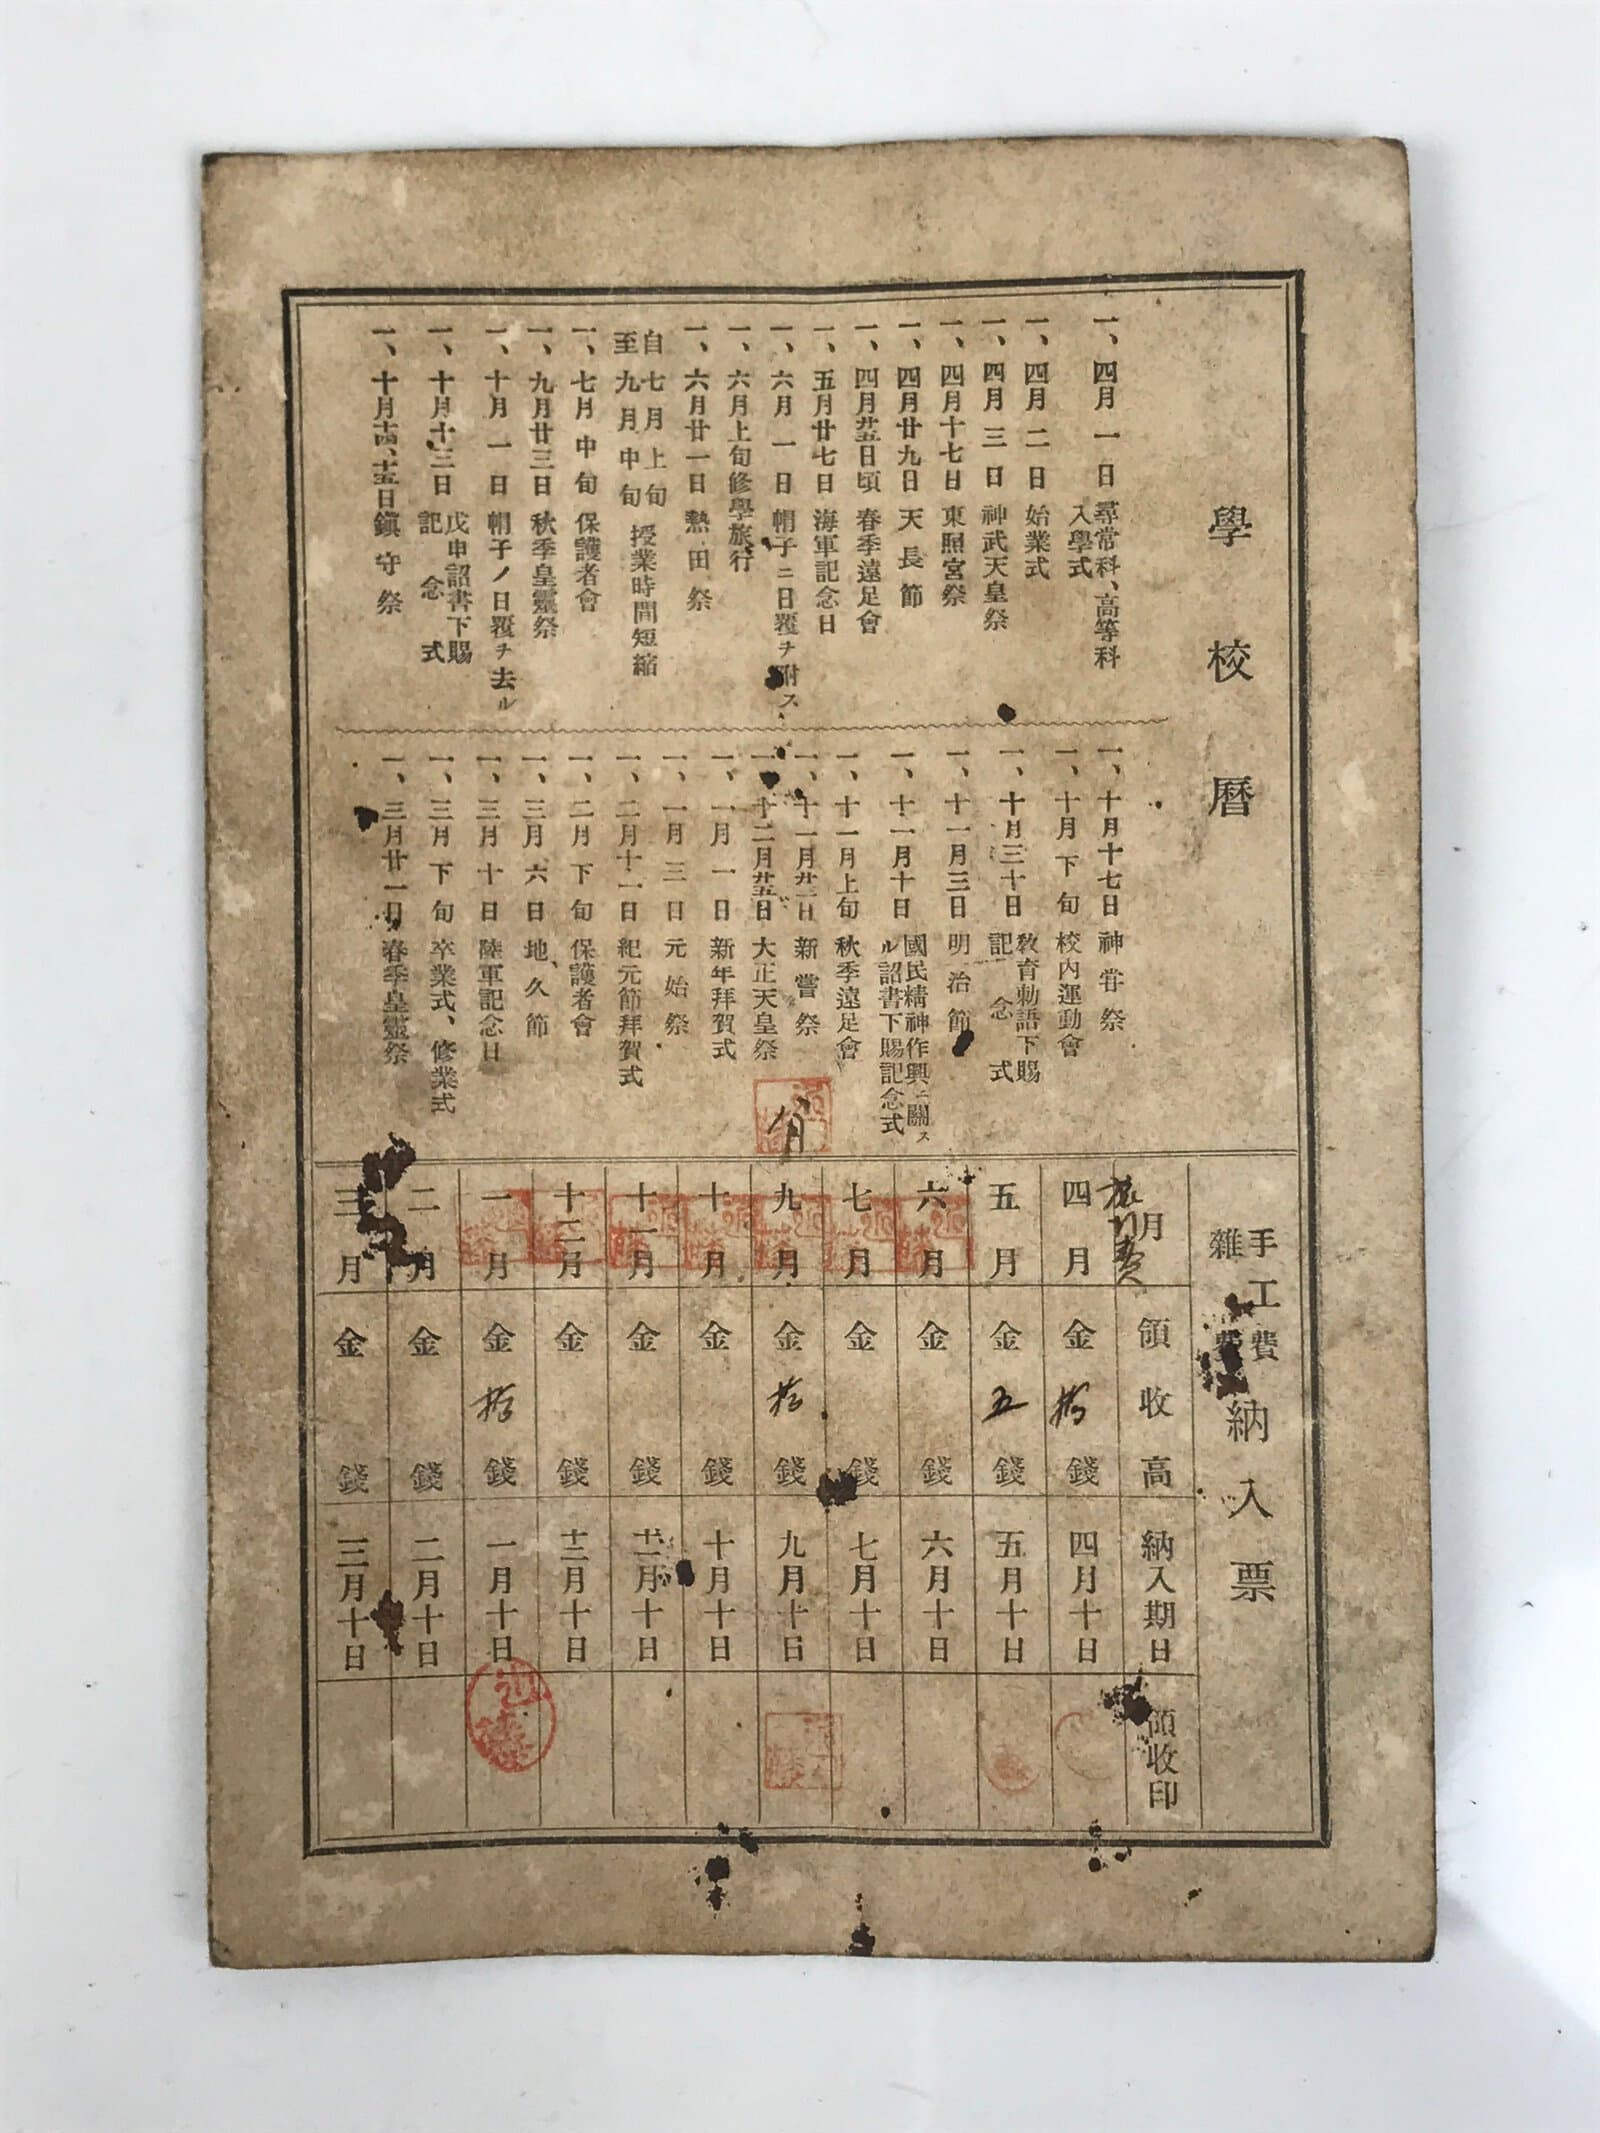 學校曆
一、四月一日 尋常科、高等科
入學式
一、四月二日 始業式
一、四月三日 神武天皇祭
一、四月十七日 東照宮祭
一、四月廿九日 天長節
一、四月廿五日頃 春季遠足會
一、五月廿七日 海軍記念日
一、六月一日 帽子ニ日覆ヲ附ス
一、六月上旬 修學旅行
一、六月廿一日 熱田祭
自七月上旬
至九月中旬 授業時間短縮
一、七月中旬 保護者會
一、九月廿三日 秋季皇靈祭
一、十月一日 帽子ノ日覆ヲ去ル
一、十月十三日 戊申詔書下賜
記念式
一、十月十四、十五日 鎭守祭
一、十月十七日 神甞祭
一、十月下旬 校內運動會
一、十月三十日 敎育勅語下賜
記念式
一、十一月三日 明治節
一、十一月十日 國民精神作興ニ關ス
ル詔書下賜記念式
一、十一月上旬 秋季遠足會
一、十一月廿三日 新嘗祭
一、十二月廿五日 大正天皇祭
一、一月一日 新年拜賀式
一、一月三日 元始祭
一、二月十一日 紀元節拜賀式
一、二月下旬 保護者會
一、三月六日 地久節
一、三月十日 陸軍記念日
一、三月下旬 卒業式、修業式
一、三月廿一日 春季皇靈祭
手工費
雜費
納入票
月 領收高 納入期日 領收印
四月 金 拾 錢 四月十日
五月 金 五 錢 五月十日
六月 金 錢 六月十日
七月 金 錢 七月十日
九月 金 拾 錢 九月十日
十月 金 錢 十月十日
十一月 金 錢 十一月十日
十二月 金 錢 十二月十日
一月 金 拾 錢 一月十日
二月 金 錢 二月十日
三月 金 錢 三月十日